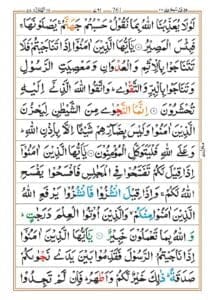 لَوْلَا يُعَذِّبُنَا اللّٰهُ بِمَا نَقُوْلُ ؕ حَسْبُهُمْ جَهَنَّمُ ۚ يَصْلَوْنَهَا ۚ
فَبِئْسَ الْمَصِيْرُ ۝ يٰۤاَيُّهَا الَّذِيْنَ اٰمَنُوْۤا اِذَا تَنَاجَيْتُمْ فَلَا
تَتَنَاجَوْا بِالْاِثْمِ وَالْعُدْوَانِ وَمَعْصِيَتِ الرَّسُوْلِ
وَتَنَاجَوْا بِالْبِرِّ وَالتَّقْوٰى ؕ وَاتَّقُوا اللّٰهَ الَّذِيْۤ اِلَيْهِ
تُحْشَرُوْنَ ۝ اِنَّمَا النَّجْوٰى مِنَ الشَّيْطٰنِ لِيَحْزُنَ
الَّذِيْنَ اٰمَنُوْا وَلَيْسَ بِضَآرِّهِمْ شَيْـًٔا اِلَّا بِاِذْنِ اللّٰهِ ؕ
وَعَلَى اللّٰهِ فَلْيَتَوَكَّلِ الْمُؤْمِنُوْنَ ۝ يٰۤاَيُّهَا الَّذِيْنَ اٰمَنُوْۤا
اِذَا قِيْلَ لَكُمْ تَفَسَّحُوْا فِى الْمَجٰلِسِ فَافْسَحُوْا يَفْسَحِ اللّٰهُ
لَكُمْ ۚ وَاِذَا قِيْلَ انْشُزُوْا فَانْشُزُوْا يَرْفَعِ اللّٰهُ
الَّذِيْنَ اٰمَنُوْا مِنْكُمْ ۙ وَالَّذِيْنَ اُوْتُوا الْعِلْمَ دَرَجٰتٍ ؕ
وَاللّٰهُ بِمَا تَعْمَلُوْنَ خَبِيْرٌ ۝ يٰۤاَيُّهَا الَّذِيْنَ اٰمَنُوْۤا اِذَا
نَاجَيْتُمُ الرَّسُوْلَ فَقَدِّمُوْا بَيْنَ يَدَيْ نَجْوٰىكُمْ
صَدَقَةً ؕ ذٰلِكَ خَيْرٌ لَّكُمْ وَاَطْهَرُ ؕ فَاِنْ لَّمْ تَجِدُوْا